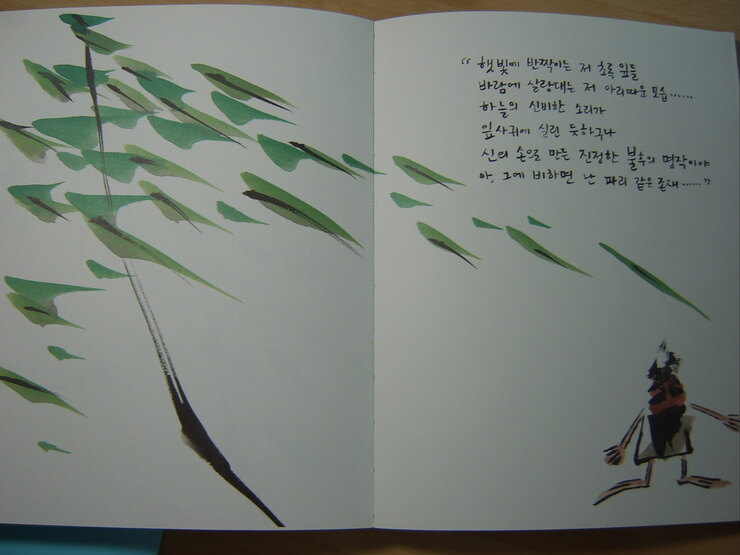 “ 햇빛에 반짝이는 저 초록 잎들
바람에 살랑대는 저 아리따운 모습……
하늘의 신비한 소리가
잎사귀에 실린 듯하구나
신의 손으로 만든 진정한 불후의 명작이야
아, 그에 비하면 난 파리 같은 존재……”